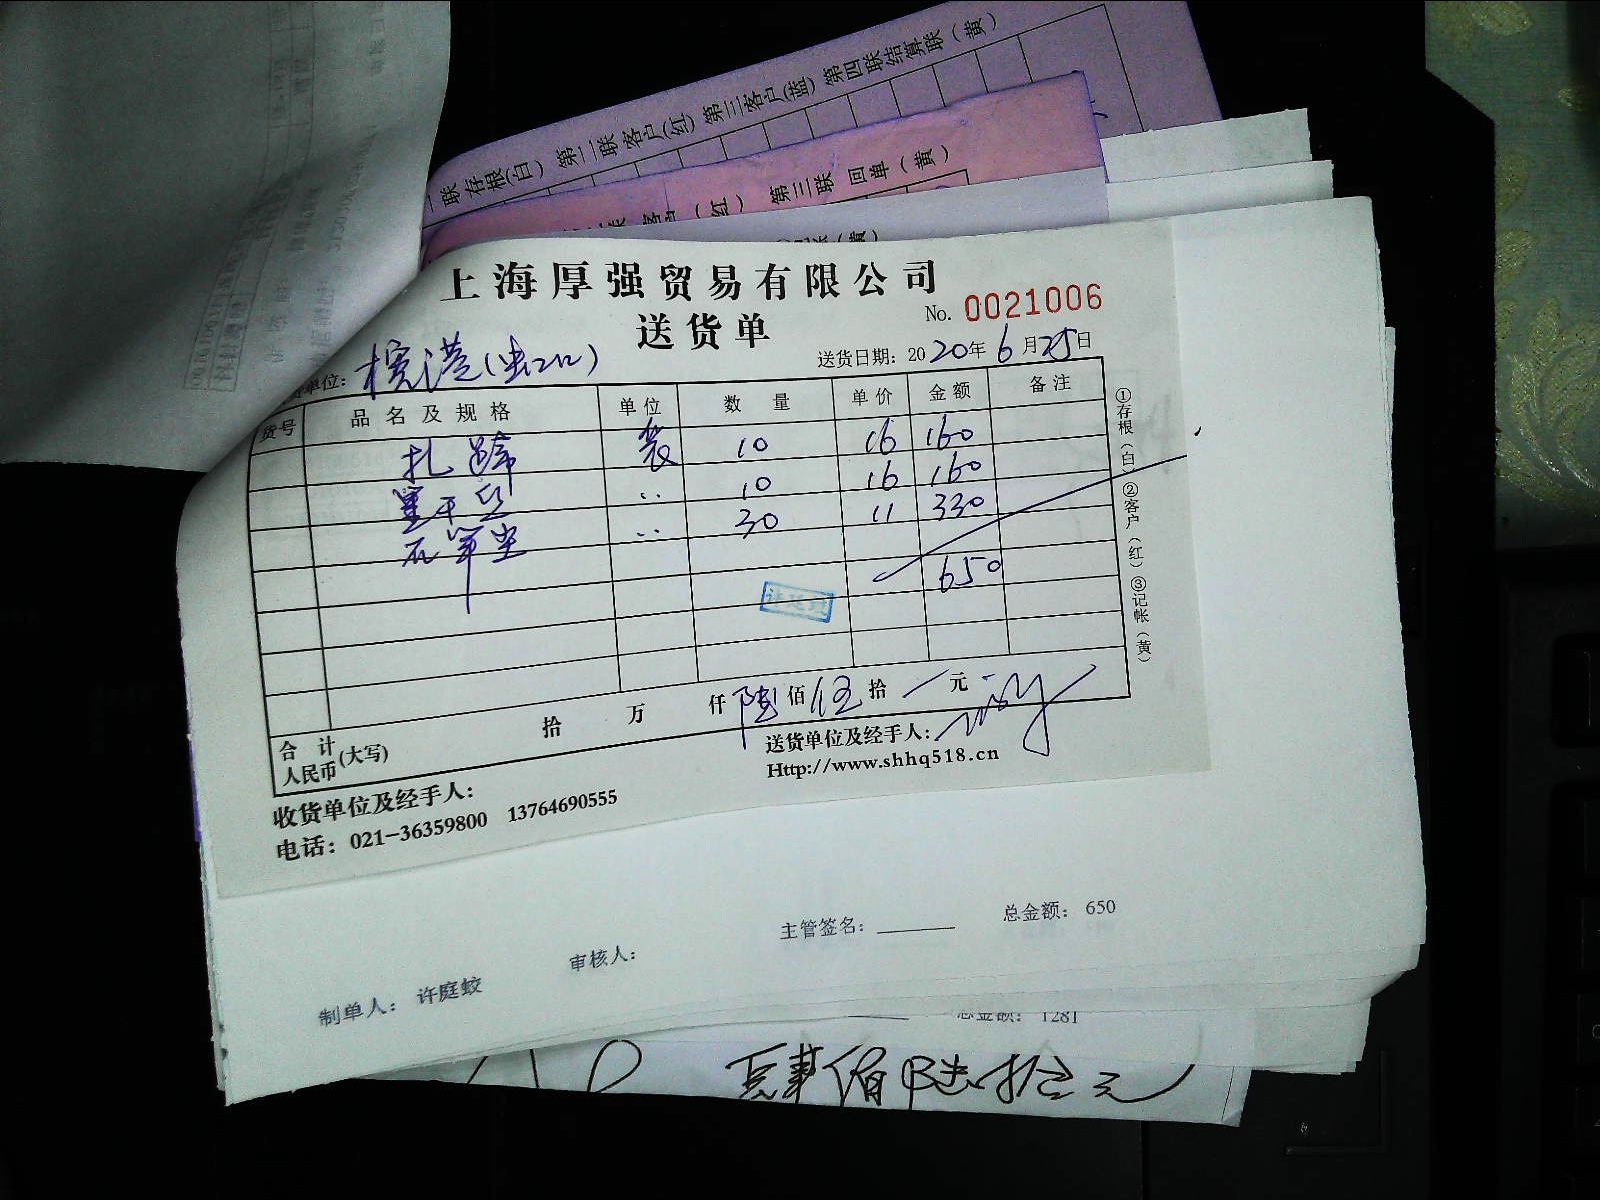 联存根(白) 第二联客户(红) 第三客户(蓝) 第四联结算联(黄)
(红) 第三联 回单(黄)
上海厚强贸易有限公司
No. 0021006
送货单
送货日期: 2020年6月25日
单位:
货号 品名及规格 单位 数量 单价 金额 备注
扎蹄 袋 10 16 160
10 16 160
30 11 330
650
①存根(白) ②客户(红) ③记帐(黄)
合计人民币(大写) 拾 万 仟 陆 佰 伍 拾 元
送货单位及经手人:
Http://www.shhq518.cn
收货单位及经手人:
电话: 021-36359800 13764690555
制单人: 许庭蛟 审核人: 主管签名: 总金额: 650
总金额: 1281
佰 陆拾元